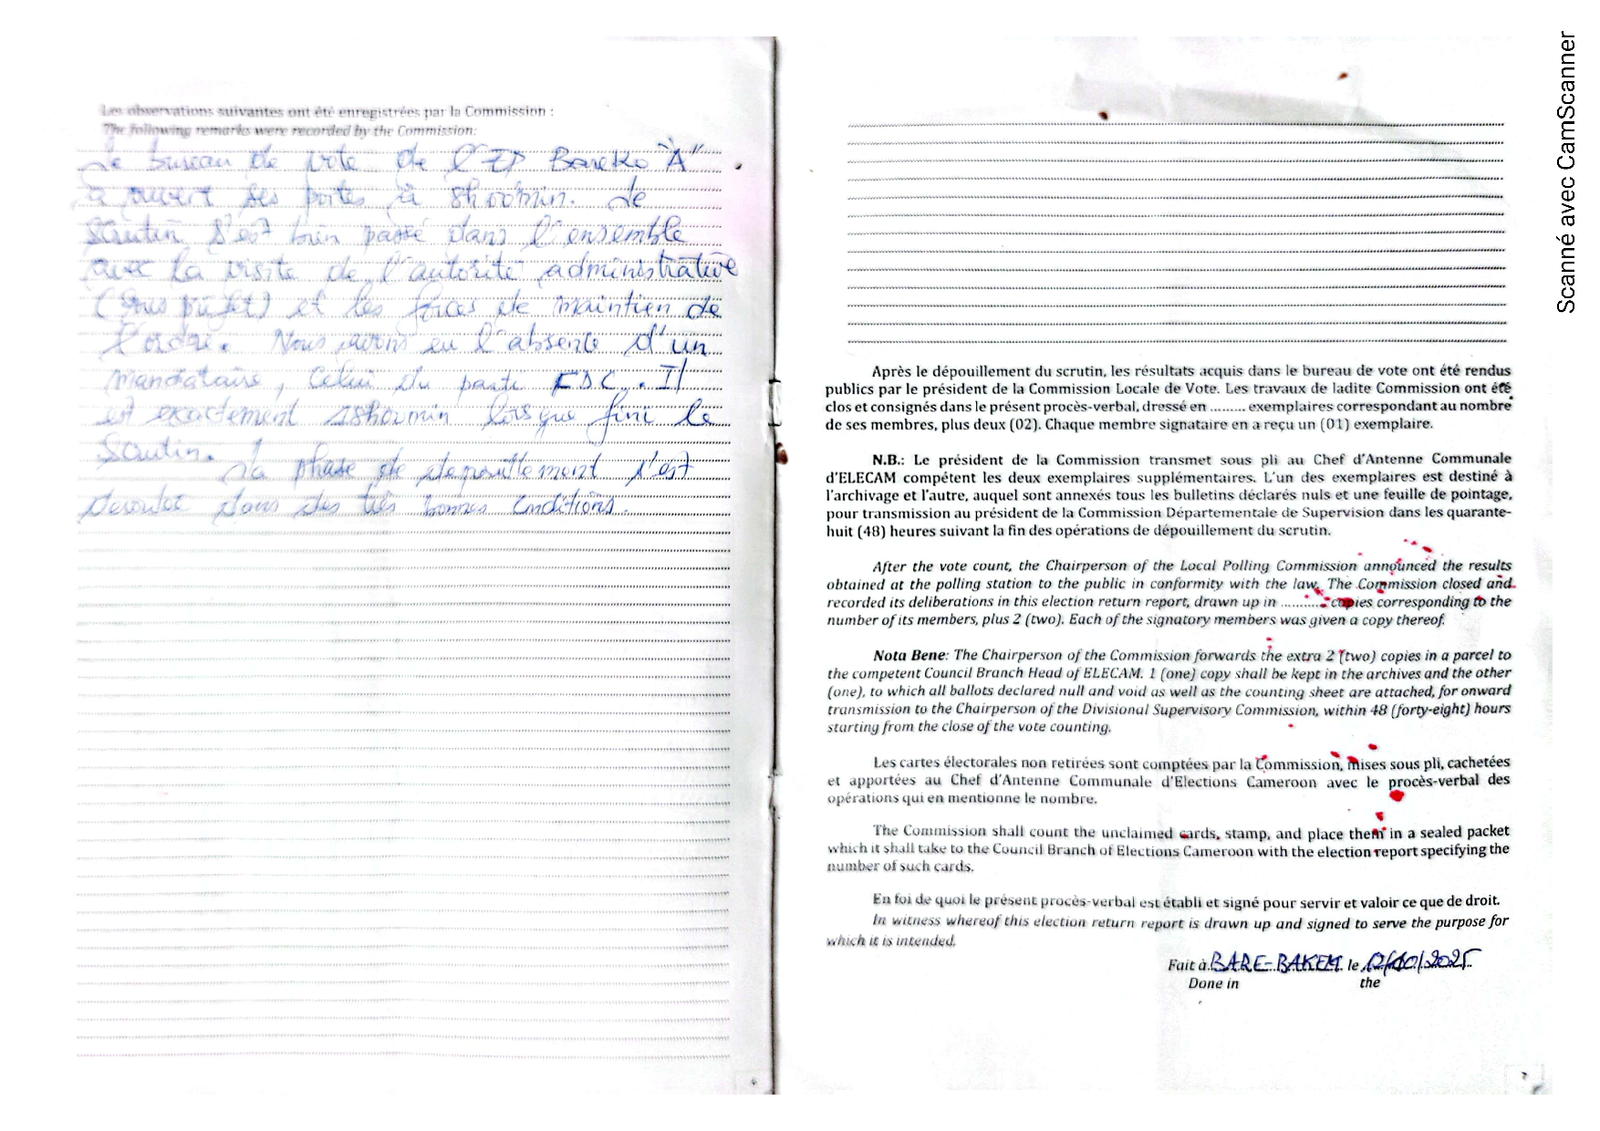 Les observations suivantes ont été enregistrées par la Commission :
The following remarks were recorded by the Commission:
Le bureau de vote de l'EP Bareko "A"
a ouvert ses portes à 8h00min. Le
scrutin s'est bien passé dans l'ensemble
avec la visite de l'autorité administrative
(Sous préfet) et les forces de maintien de
l'ordre. Nous avons eu l'absence d'un
mandataire, celui du parti . Il
est exactement 18h00min lorsque fini le
Scrutin. La phase de depouillement s'est
deroulée dans des très bonnes conditions.
6
Après le dépouillement du scrutin, les résultats acquis dans le bureau de vote ont été rendus
publics par le président de la Commission Locale de Vote. Les travaux de ladite Commission ont été
clos et consignés dans le présent procès-verbal, dressé en ......... exemplaires correspondant au nombre
de ses membres, plus deux (02). Chaque membre signataire en a reçu un (01) exemplaire.
N.B.: Le président de la Commission transmet sous pli au Chef d'Antenne Communale
d'ELECAM compétent les deux exemplaires supplémentaires. L'un des exemplaires est destiné à
l'archivage et l'autre, auquel sont annexés tous les bulletins déclarés nuls et une feuille de pointage,
pour transmission au président de la Commission Départementale de Supervision dans les quarante-
huit (48) heures suivant la fin des opérations de dépouillement du scrutin.
After the vote count, the Chairperson of the Local Polling Commission announced the results
obtained at the polling station to the public in conformity with the law. The Commission closed and
recorded its deliberations in this election return report, drawn up in ........... copies corresponding to the
number of its members, plus 2 (two). Each of the signatory members was given a copy thereof.
Nota Bene: The Chairperson of the Commission forwards the extra 2 (two) copies in a parcel to
the competent Council Branch Head of ELECAM. 1 (one) copy shall be kept in the archives and the other
(one), to which all ballots declared null and void as well as the counting sheet are attached, for onward
transmission to the Chairperson of the Divisional Supervisory Commission, within 48 (forty-eight) hours
starting from the close of the vote counting.
Les cartes électorales non retirées sont comptées par la Commission, mises sous pli, cachetées
et apportées au Chef d'Antenne Communale d'Elections Cameroon avec le procès-verbal des
opérations qui en mentionne le nombre.
The Commission shall count the unclaimed cards, stamp, and place them in a sealed packet
which it shall take to the Council Branch of Elections Cameroon with the election report specifying the
number of such cards.
En foi de quoi le présent procès-verbal est établi et signé pour servir et valoir ce que de droit.
In witness whereof this election return report is drawn up and signed to serve the purpose for
which it is intended.
Fait à BARE-BAKEM le 12/10/2025
Done in the
7
Scanné avec CamScanner